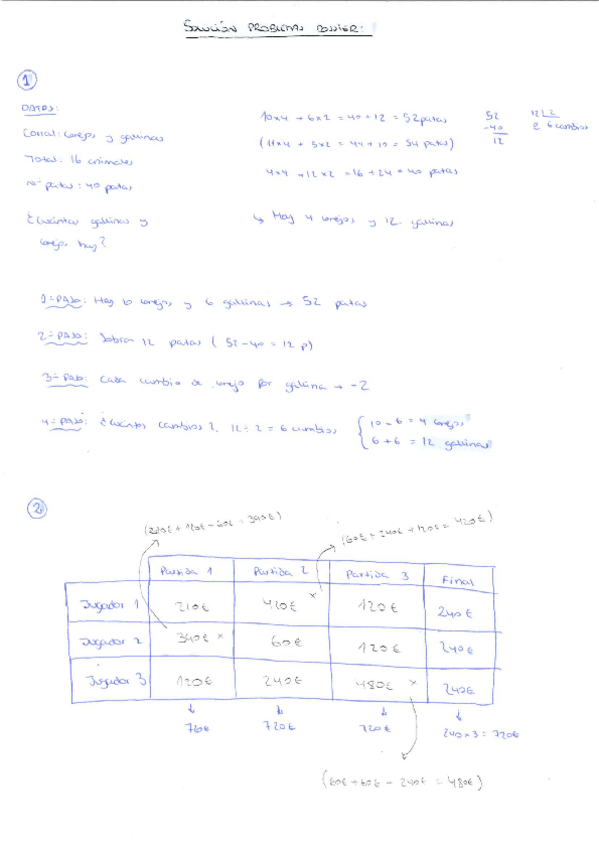 SOLUCIÓN PROBLEMAS DOSSIER:
1
DATOS:
Corral: conejos y gallinas
Total: 16 animales
nº patas: 40 patas
¿Cuántas gallinas y
conejos hay?
10x4 + 6x2 = 40+12 = 52 patas
(11x4 + 5x2 = 44+10 = 54 patas)
4x4 + 12x2 = 16+24 = 40 patas
↳ Hay 4 conejos y 12 gallinas
52
-40
12
12 2
0 6 cambios
1º PASO: Hay 10 conejos y 6 gallinas → 52 patas
2º PASO: Sobran 12 patas (52-40 = 12 p)
3º PASO: Cada cambio de conejo por gallina → -2
4º PASO: ¿Cuántos cambios?. 12÷2 = 6 cambios
10-6 = 4 conejos
6+6 = 12 gallinas
2
(60€ + 240€ + 120€ = 420€)
Partida 1 Partida 2 Partida 3 Final
Jugador 1 210€ 420€ x 120€ 240€
Jugador 2 390€ x 60€ 120€ 240€
Jugador 3 120€ 240€ 480€ x 240€
720€ 720€ 720€ 240x3 = 720€